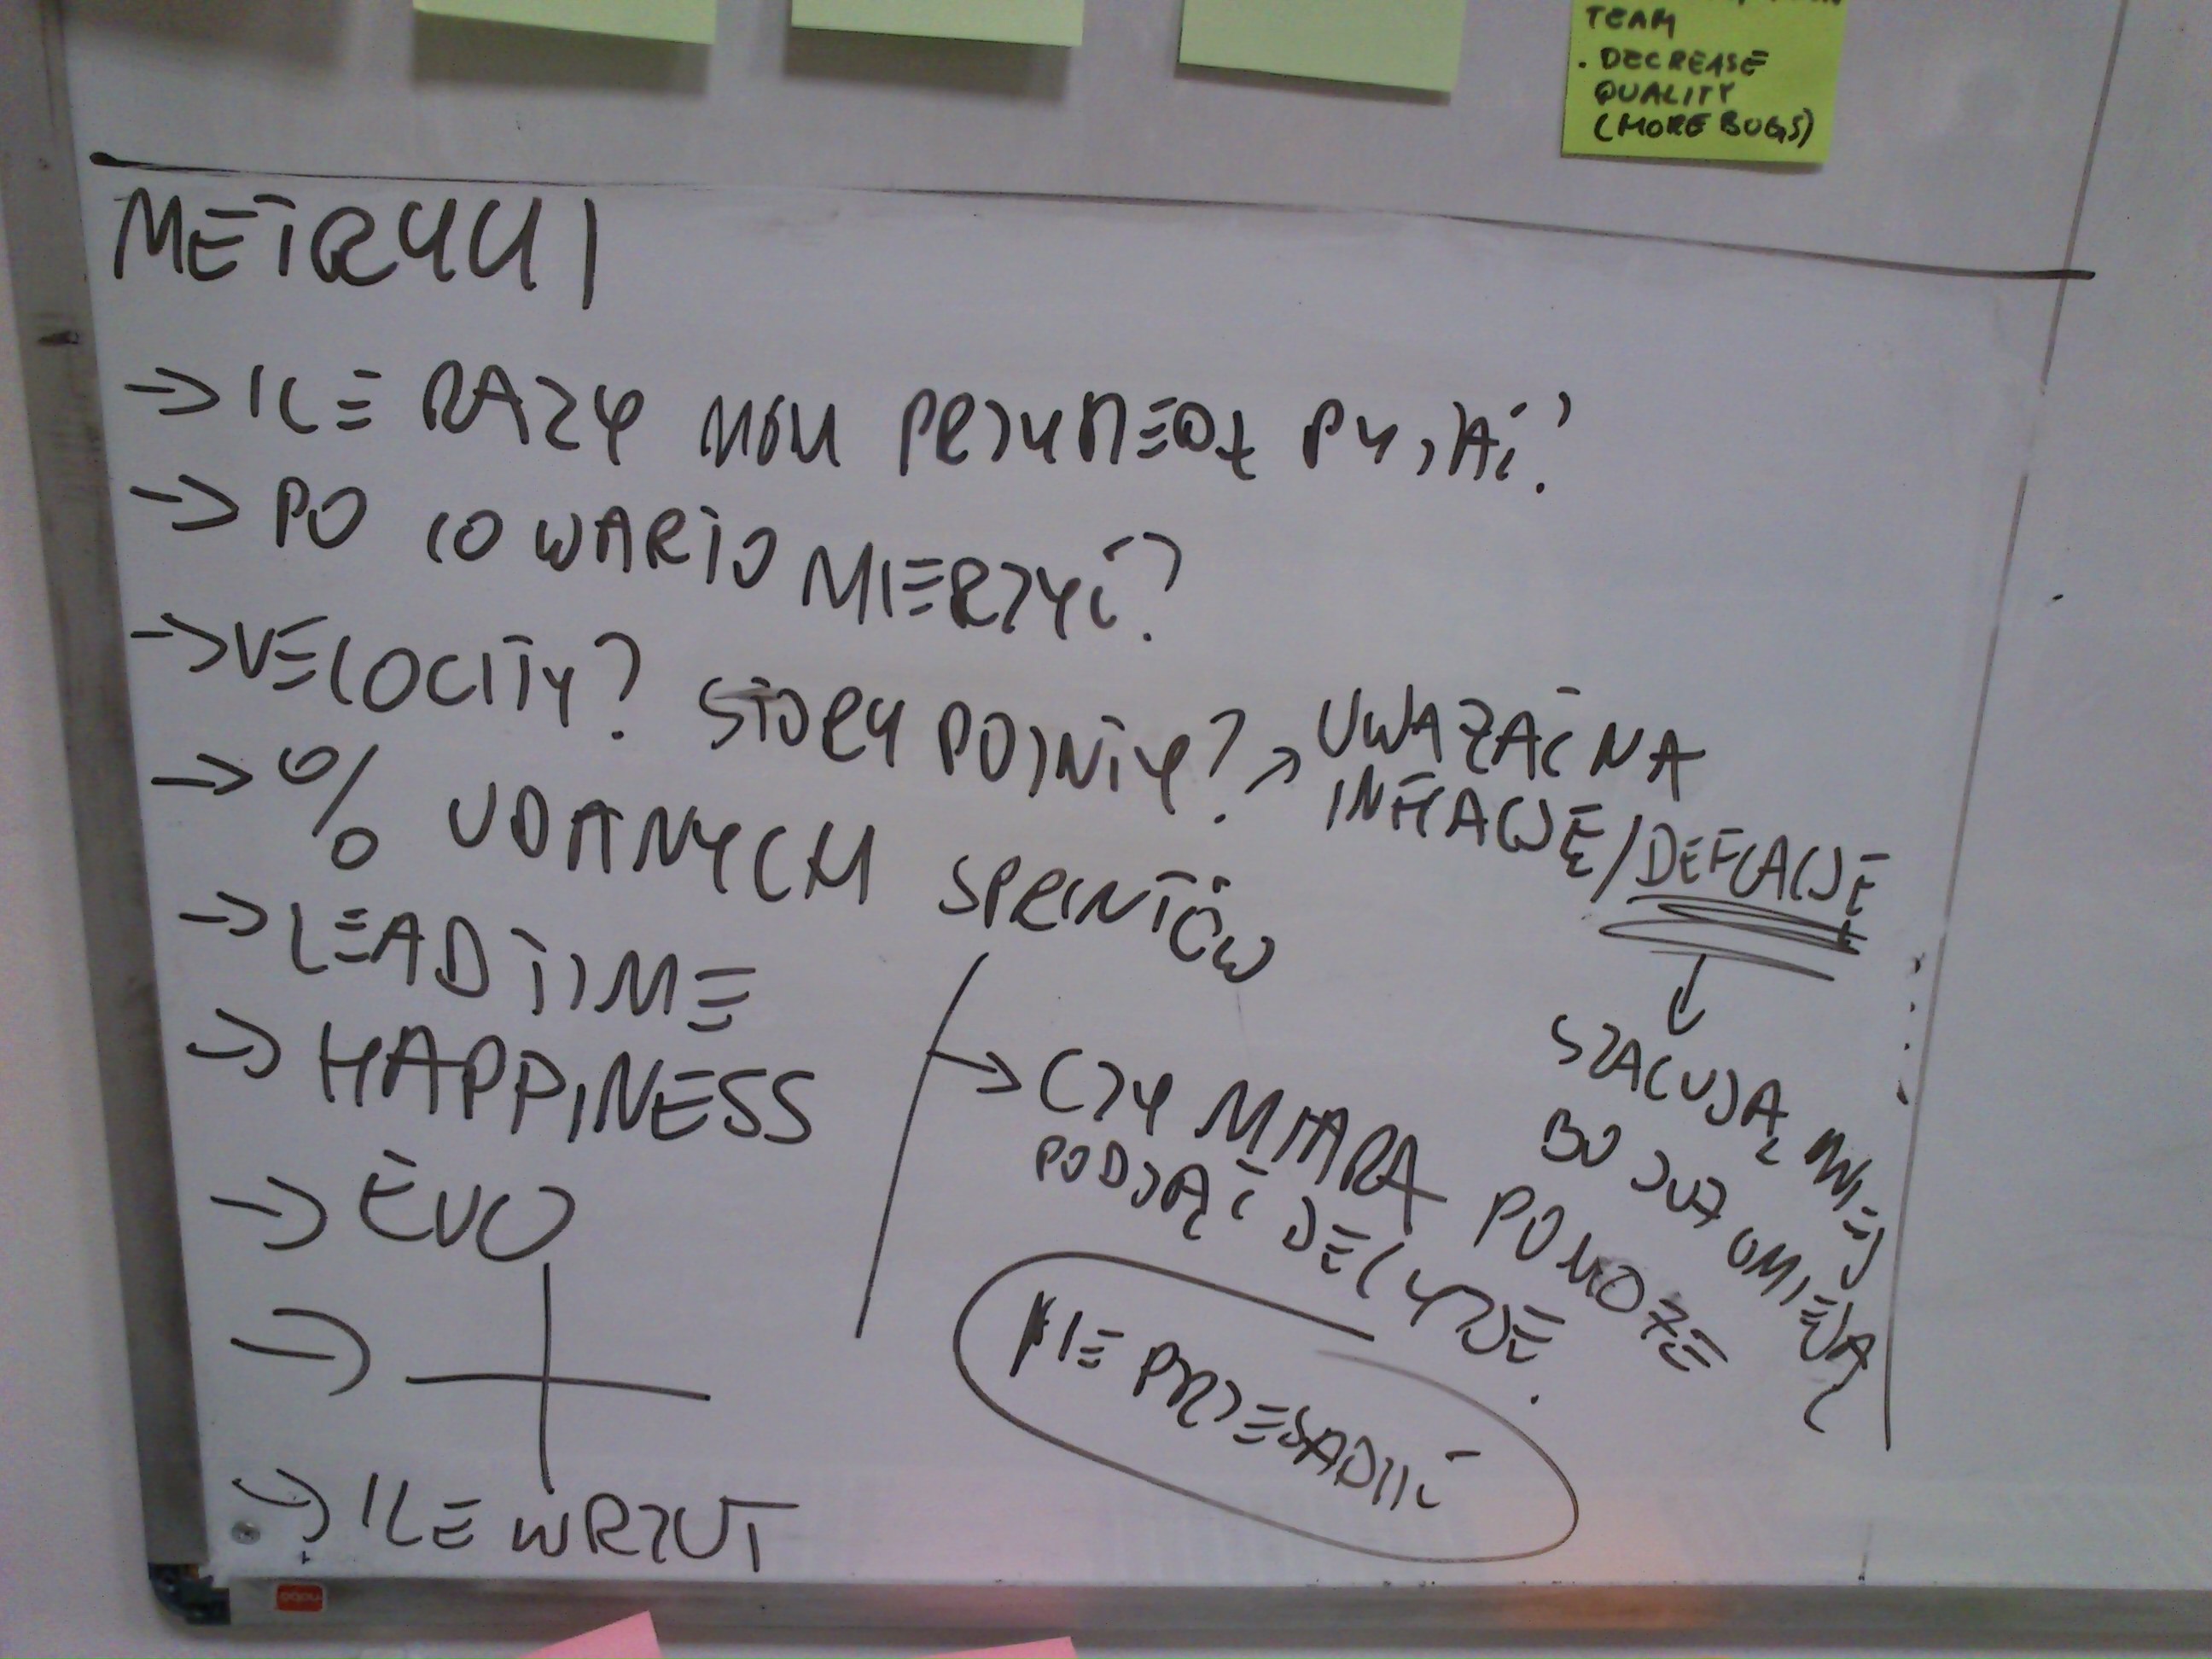 TEAM
. DECREASE
QUALITY
(MORE BUGS)
METRYKI
→ ILE RAZY MOGĄ PYTAĆ?
→ PO CO WARTO MIERZYĆ?
→ VELOCITY? STORY POINTY? → UWAŻAĆ NA
INFLACJĘ/DEFLACJĘ
↓
SZACUJĄ MNIEJ
BO JUŻ UMIEJĄ
→ % UDANYCH SPRINTÓW
→ LEAD TIME
→ HAPPINESS
→ EVO
→
→ ILE WRZUT
→ CZY MIARA POMOŻE
PODJĄĆ DECYZJĘ.
NIE PRZESADZIĆ
nobo